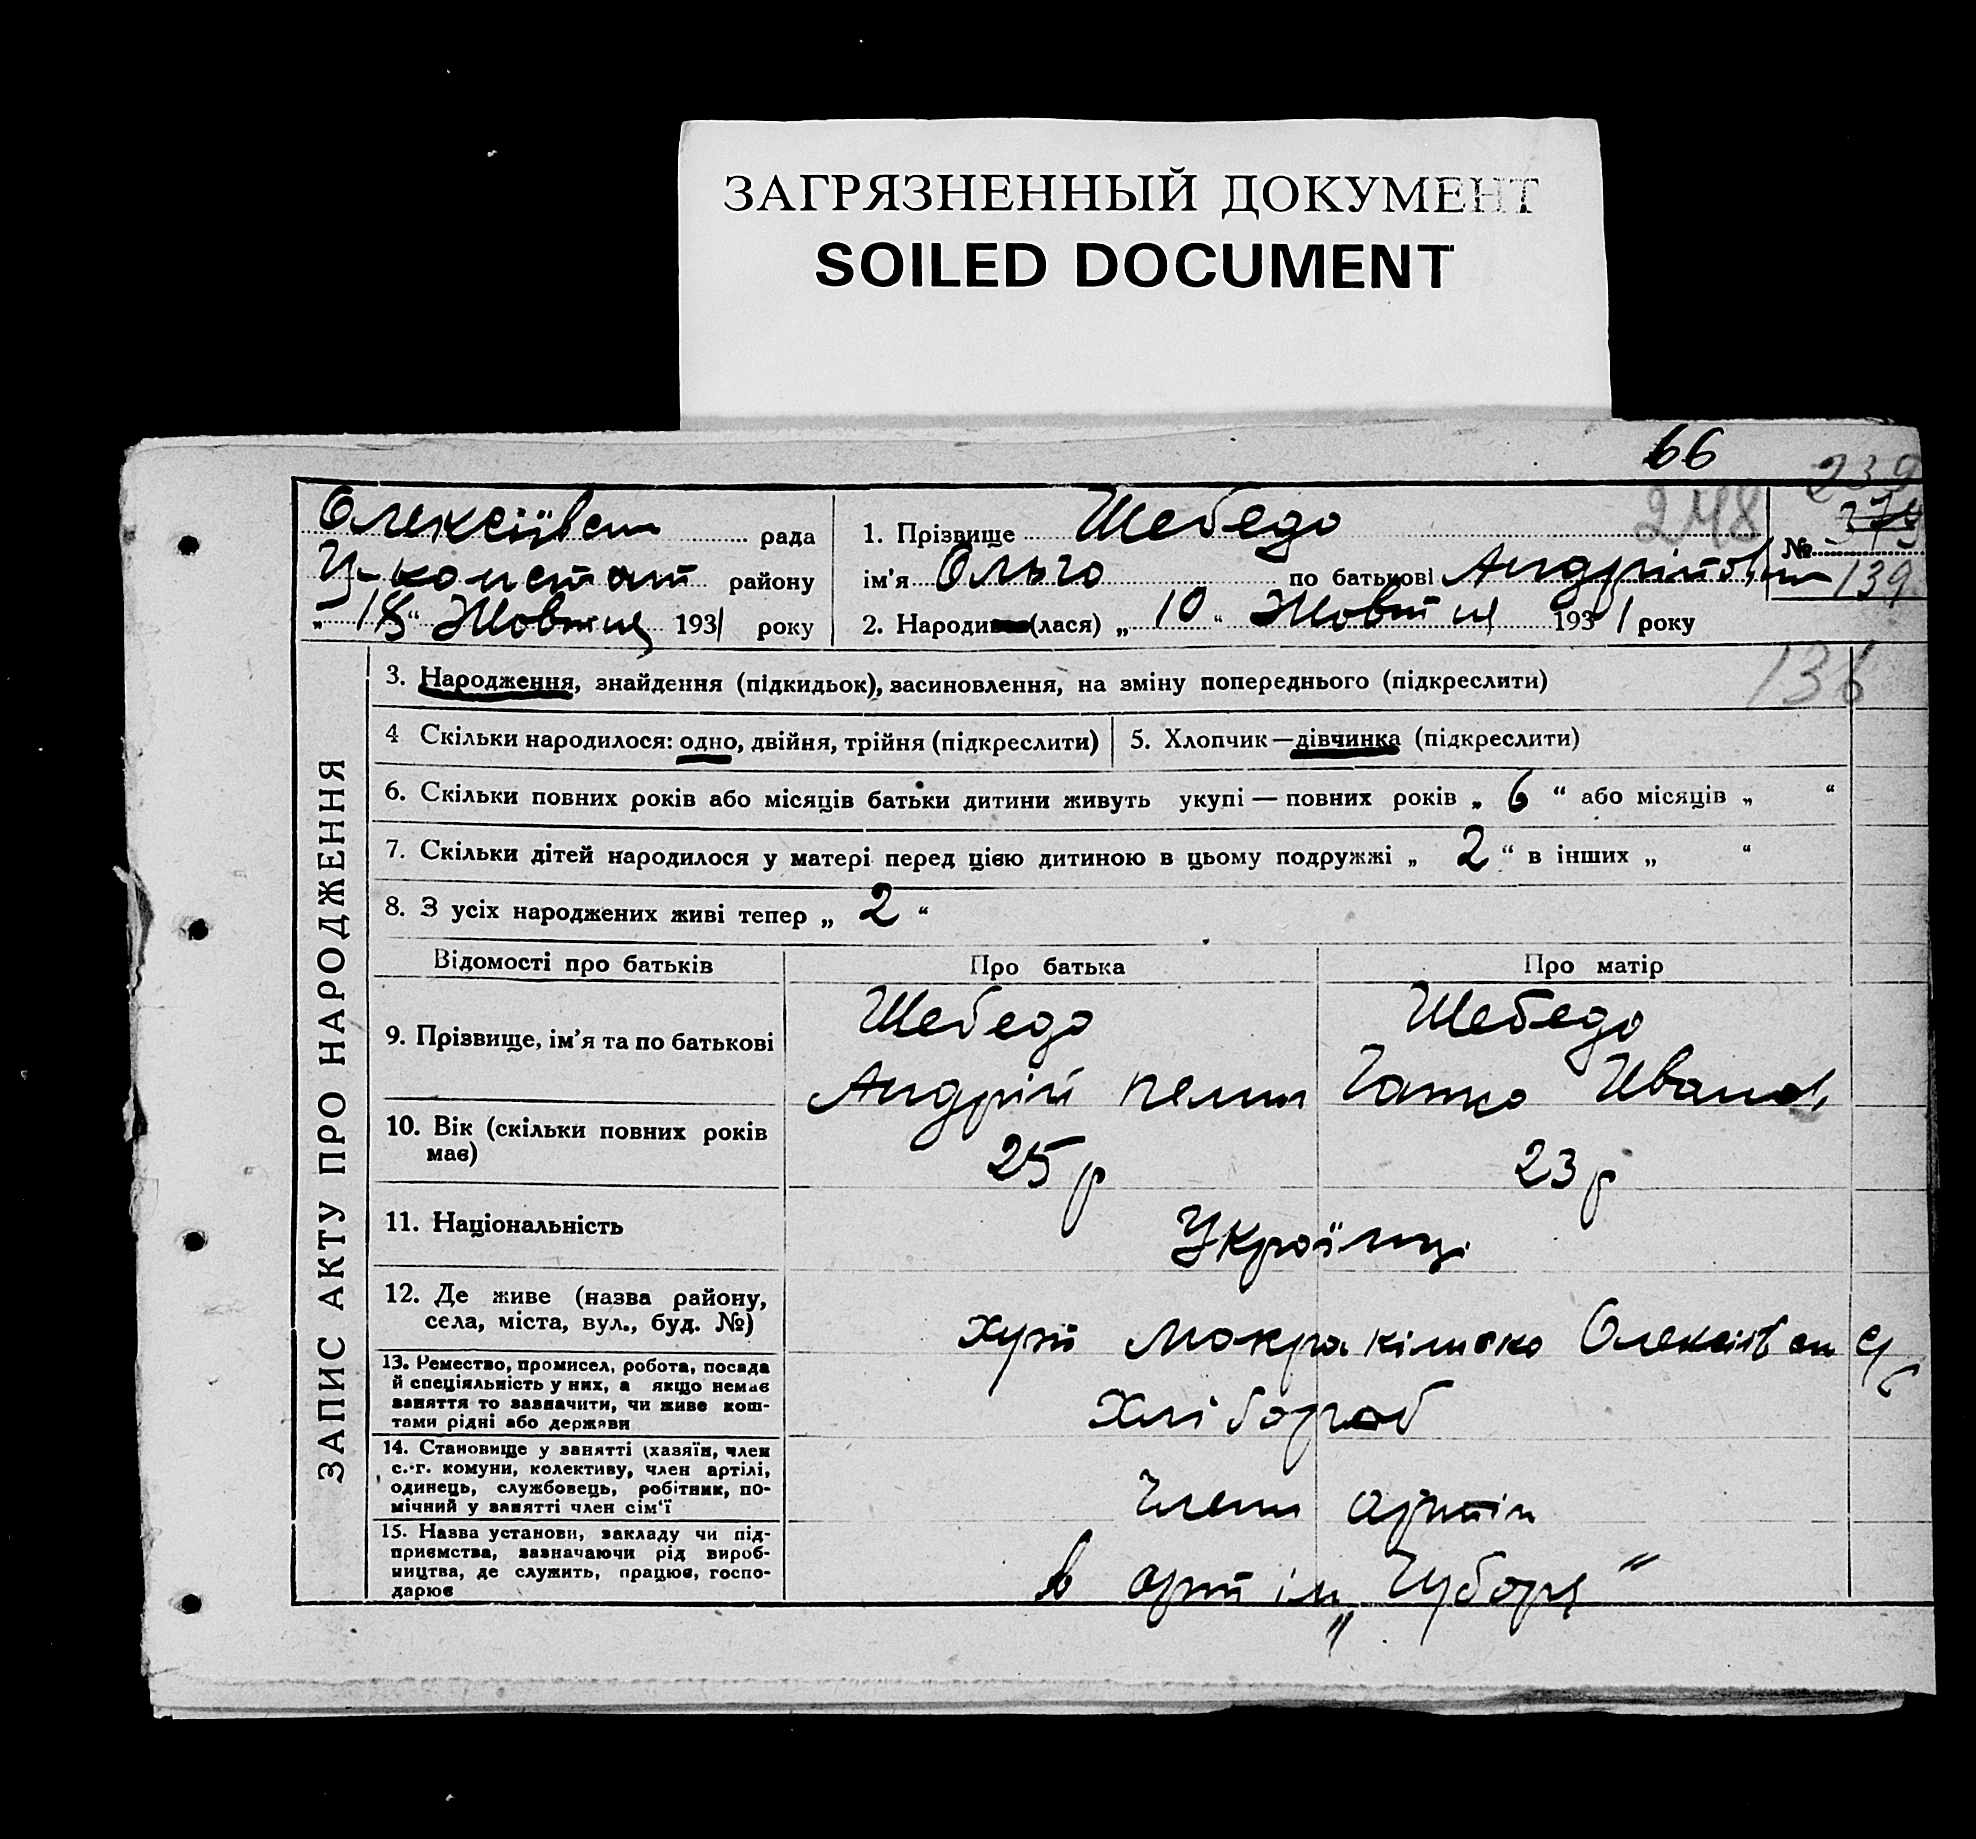 ЗАГРЯЗНЕННЫЙ ДОКУМЕНТ
SOILED DOCUMENT
66
239
248
Олексіївсш рада
1. Прізвище Шебедо
№ 139
Ц-констант району
ім'я Ольго по батькові Андріівн
„18“ Жовтня 1931 року
2. Народи (лася) „10“ Жовтня 1931 року
136
ЗАПИС АКТУ ПРО НАРОДЖЕННЯ
3. Народження, знайдення (підкидьок), засиновлення, на зміну попереднього (підкреслити)
4 Скільки народилося: одно, двійня, трійня (підкреслити)
5. Хлопчик—дівчинка (підкреслити)
6. Скільки повних років або місяців батьки дитини живуть укупі — повних років „ 6 “ або місяців „ “
7. Скільки дітей народилося у матері перед цією дитиною в цьому подружжі „ 2 “ в інших „ “
8. З усіх народжених живі тепер „ 2 “
Відомості про батьків
Про батька
Про матір
9. Прізвище, ім'я та по батькові
Шебедо
Андрій
Шебедо
Иванов
10. Вік (скільки повних років має)
25 р
23 р
11. Національність
Українці
12. Де живе (назва району, села, міста, вул., буд. №)
хут
13. Ремество, промисел, робота, посада й спеціяльність у них, а якщо немає заняття то зазначити, чи живе коштами рідні або держави
Хлібороб
14. Становище у занятті (хазяїн, член с.-г. комуни, колективу, член артілі, одинець, службовець, робітник, помічний у занятті член сім'ї
Член артіл
15. Назва установи, закладу чи підприємства, зазначаючи рід виробництва, де служить, працює, господарює
в артіл „Чубаря“